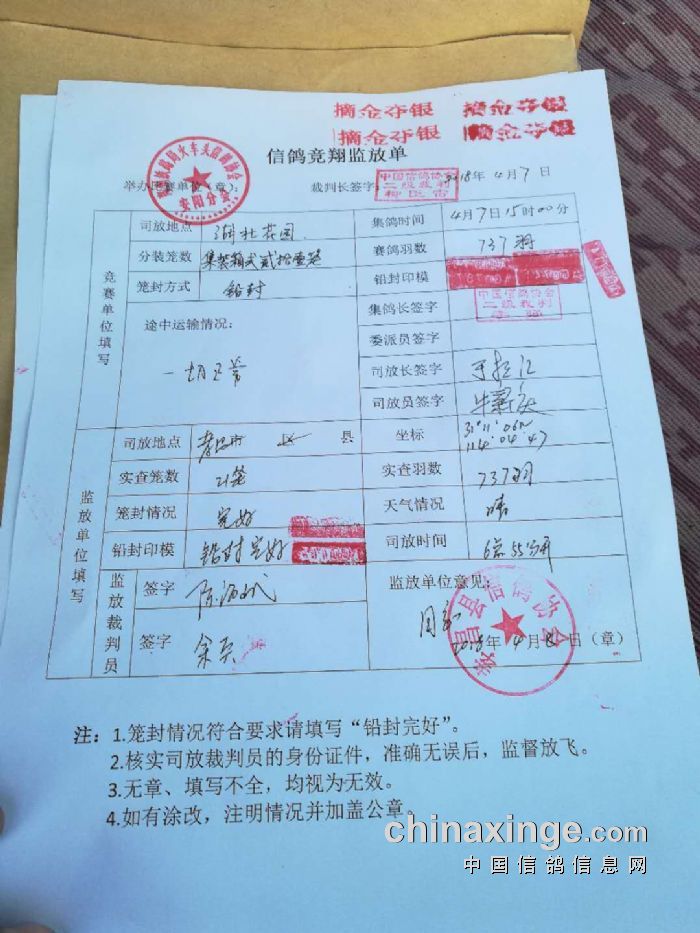 摘金夺银 摘金夺银
摘金夺银 摘金夺银
信鸽竞翔监放单
安阳分会
举办比赛单位（章）： 裁判长签字： 中国信鸽协会 二级裁判 2018年4月7日
竞赛单位填写
司放地点 湖北花园 集鸽时间 4月7日15时00分
分装笼数 集装箱式贰拾壹笼 赛鸽羽数 737羽
笼封方式 铅封 铅封印模
途中运输情况： 集鸽长签字 中国信鸽协会 二级裁判
一切正常 委派员签字
司放长签字
司放员签字
监放单位填写
司放地点 孝昌市 区 县 坐标 31°11′06N
114°04′47
实查笼数 21笼 实查羽数 737羽
笼封情况 完好 天气情况 晴
铅封印模 铅封完好 司放时间 6点55分
监放裁判员
签字 监放单位意见：
签字 同意
孝昌县信鸽协会
2018年4月8日（章）
注：1.笼封情况符合要求请填写“铅封完好”。
2.核实司放裁判员的身份证件，准确无误后，监督放飞。
3.无章、填写不全，均视为无效。
4.如有涂改，注明情况并加盖公章。
chinaxinge.com
中国信鸽信息网